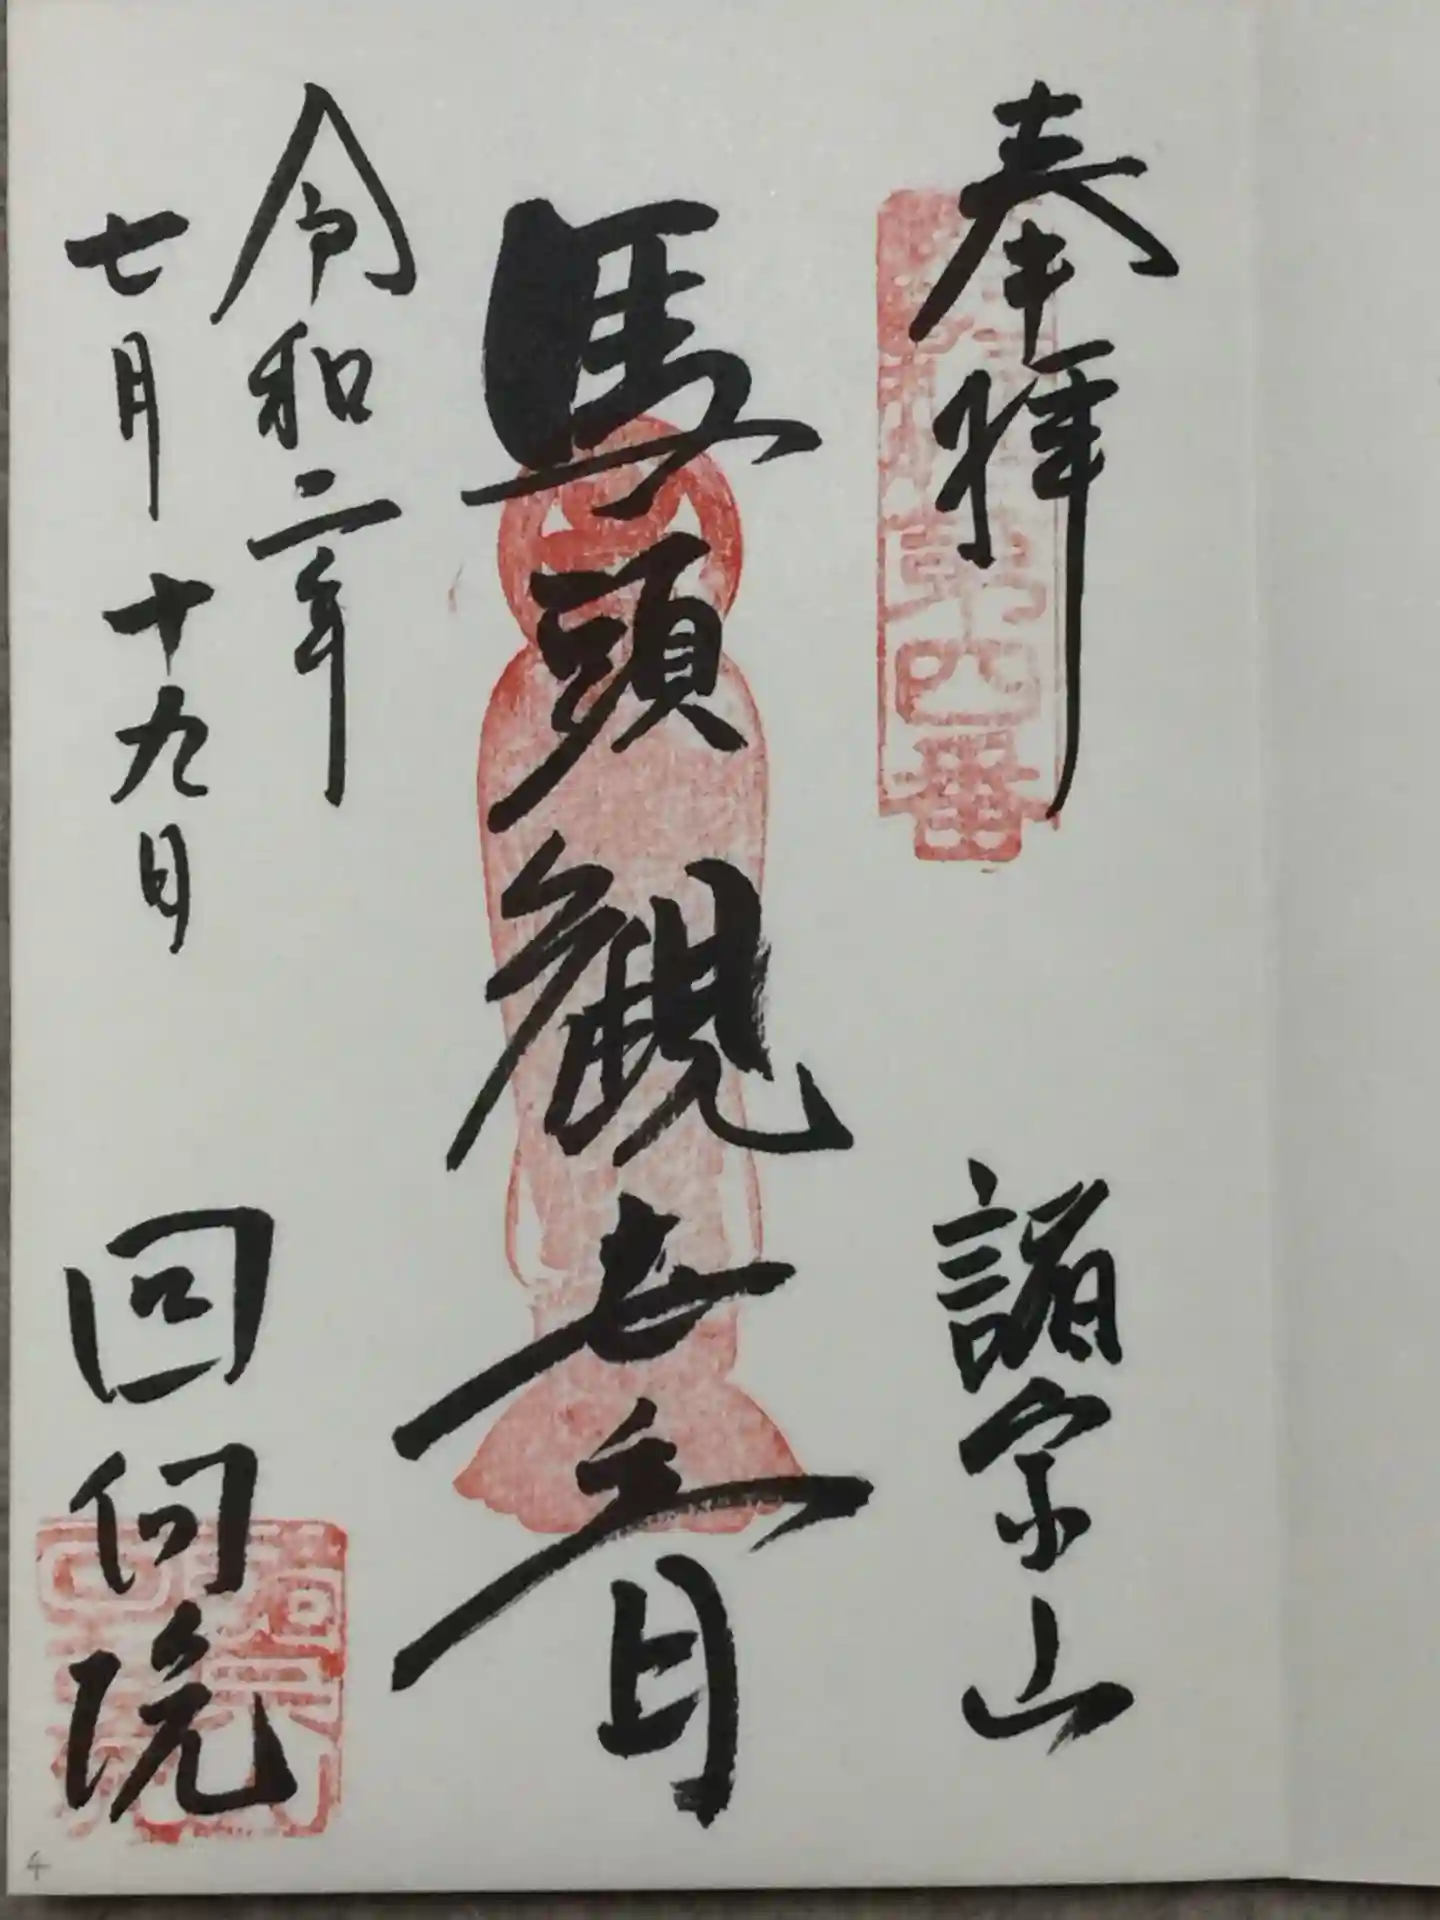 奉拝
諸宗山
第四番
馬頭觀世音
令和二年
七月十九日
回向院
4